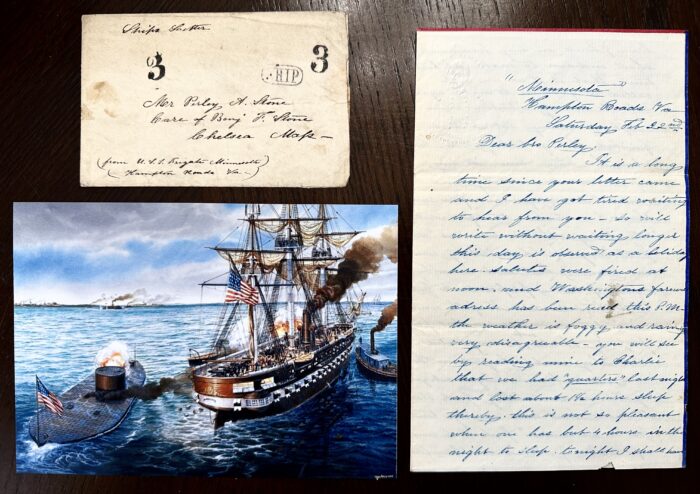 Ships Letter
3
SHIP
3
Mr Perley A. Stone
Care of Benj F. Stone
Chelsea Mass
(from U.S.S. Frigate Minnesota)
(Hampton Roads Va -)
"Minnesota"
Hampton Roads Va
Saturday Feb 22nd
Dear bro Perley
It is a long
time since your letter came
and I have got tired waiting
to hear from you - so will
write without waiting longer
this day is observed as a holiday
here. Salutes were fired at
noon. and Washingtons farewell
adress has been read this P.M.
the weather is foggy and rainy
very disagreeable - you will see
by reading mine to Charlie
that we had "quarters" last night
and lost about 1½ hours sleep
thereby. this is not so pleasant
when one has but 4 hours in the
night to sleep. tonight I shall have